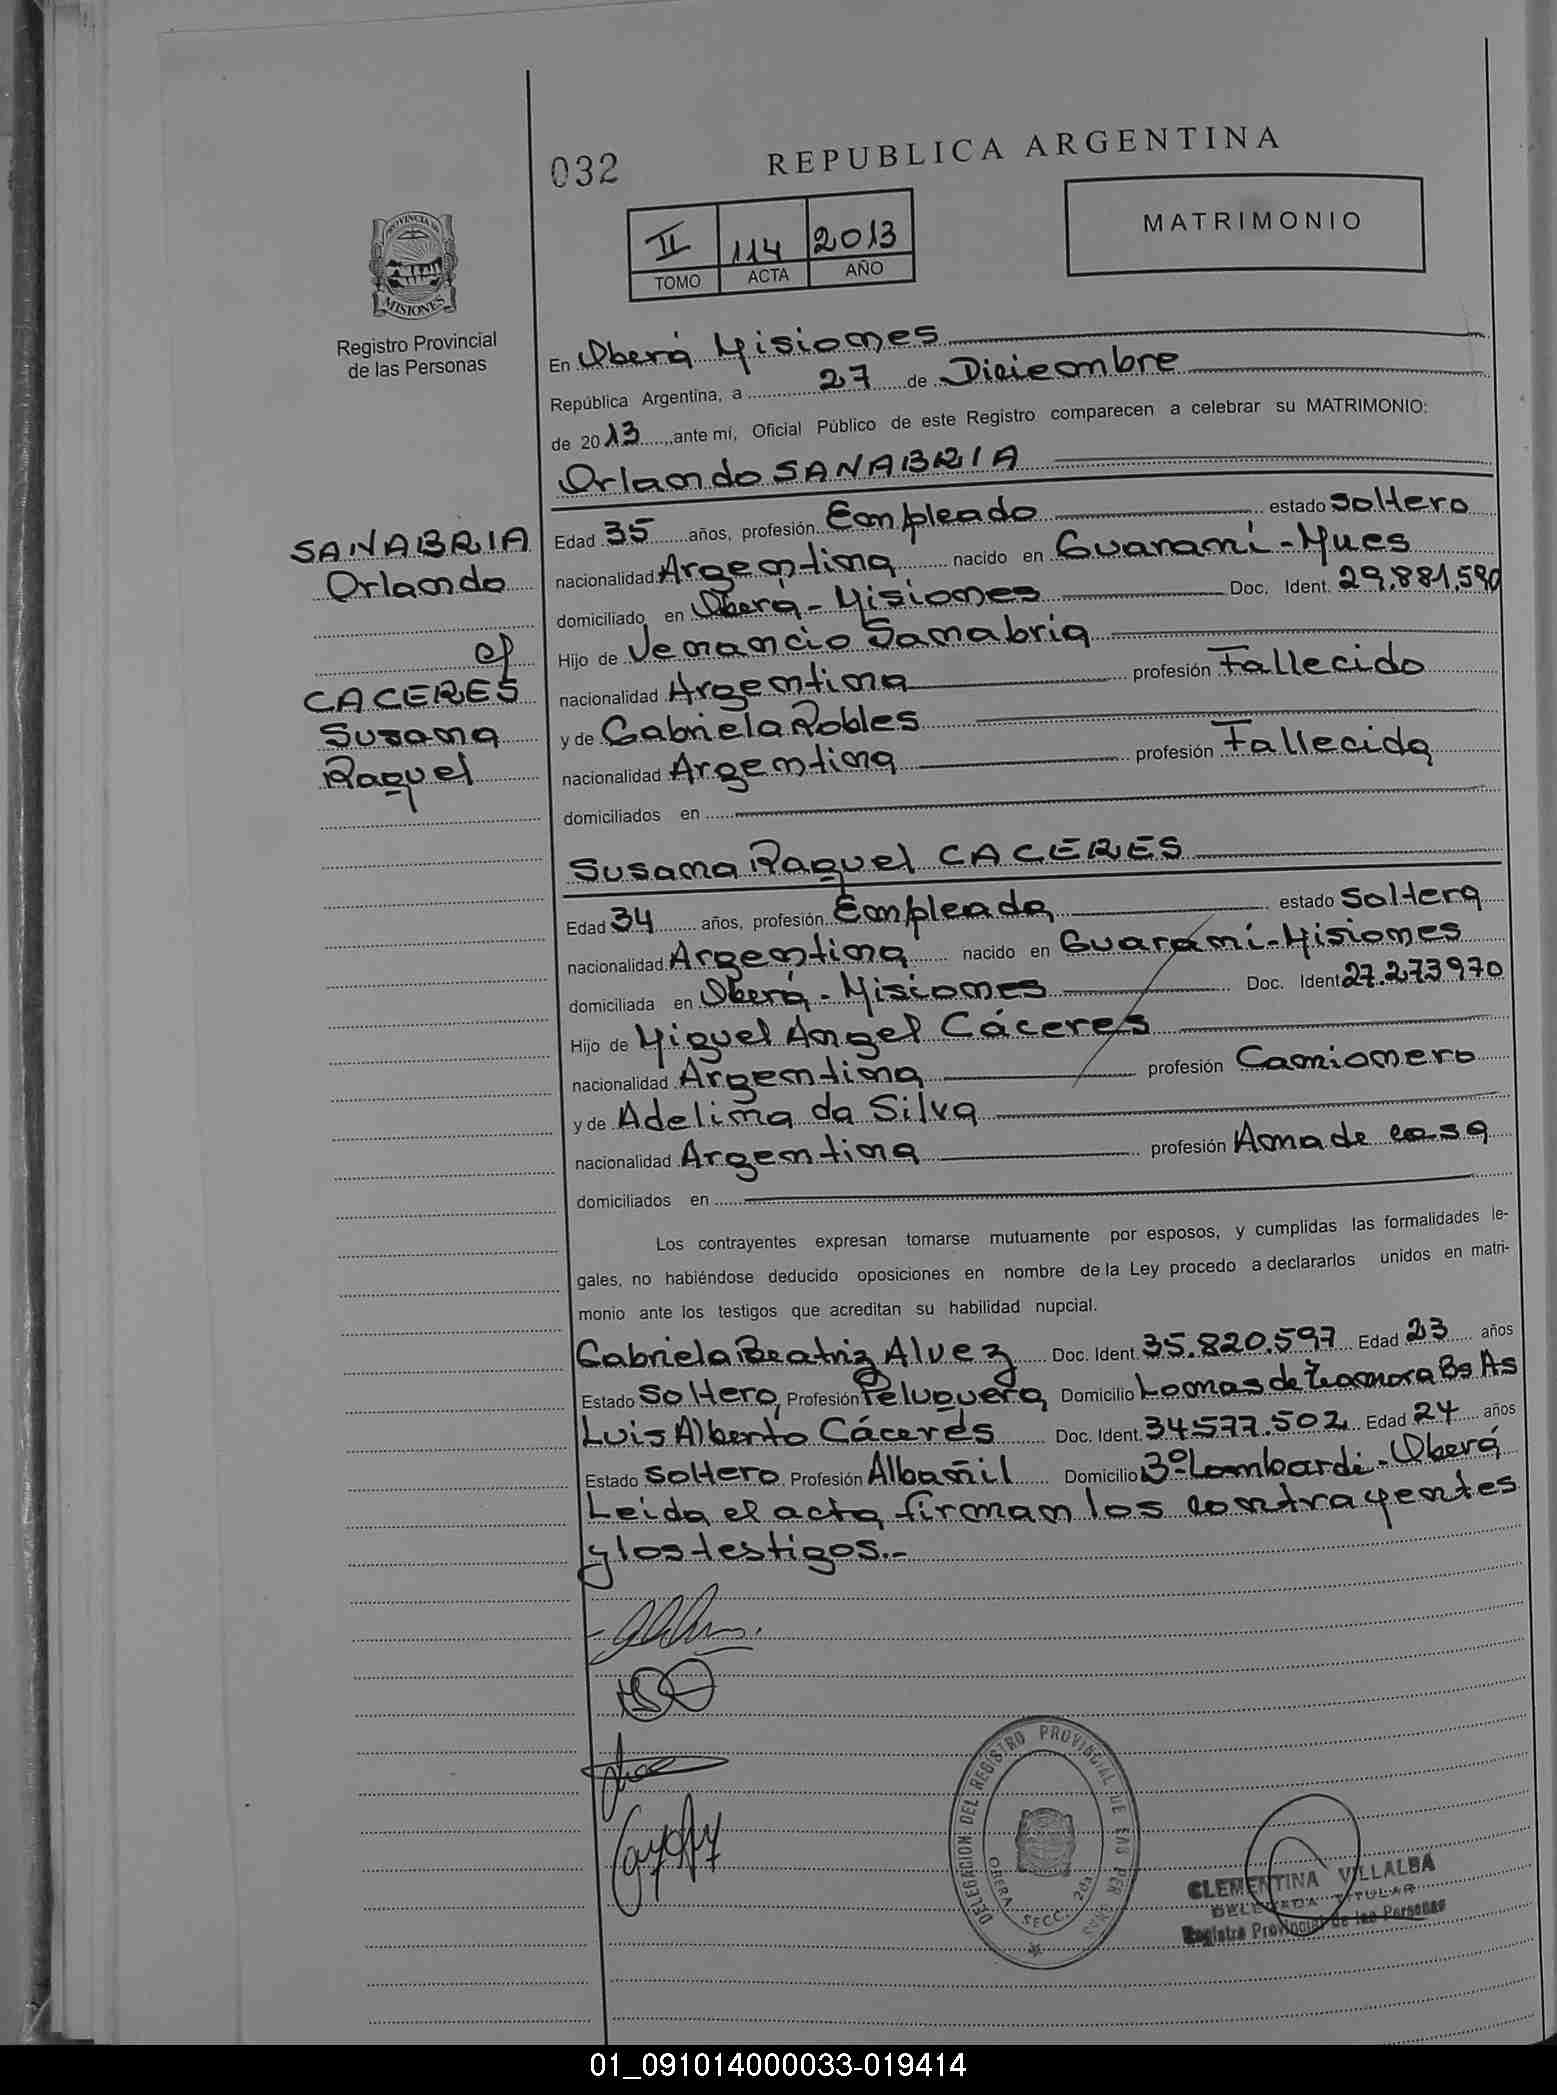 032
REPUBLICA ARGENTINA
PROVINCIA DE
MISIONES
Registro Provincial
de las Personas
II 114 2013
TOMO ACTA AÑO
MATRIMONIO
En Oberá Misiones
República Argentina, a 27 de Diciembre
de 2013, ante mí, Oficial Público de este Registro comparecen a celebrar su MATRIMONIO:
Orlando SANABRIA
SANABRIA
Orlando
c/
CACERES
Susana
Raquel
Edad 35 años, profesión Empleado estado Soltero
nacionalidad Argentina nacido en Guaraní - Mnes
domiciliado en Oberá - Misiones Doc. Ident. 29.881.590
Hijo de Venancio Sanabria
nacionalidad Argentina profesión Fallecido
y de Gabriela Robles
nacionalidad Argentina profesión Fallecida
domiciliados en
Susana Raquel CACERES
Edad 34 años, profesión Empleada estado Soltera
nacionalidad Argentina nacido en Guaraní - Misiones
domiciliada en Oberá - Misiones Doc. Ident 27.273970
Hijo de Miguel Angel Cáceres
nacionalidad Argentina profesión Camionero
y de Adelina da Silva
nacionalidad Argentina profesión Ama de casa
domiciliados en
Los contrayentes expresan tomarse mutuamente por esposos, y cumplidas las formalidades le-
gales, no habiéndose deducido oposiciones en nombre de la Ley procedo a declararlos unidos en matri-
monio ante los testigos que acreditan su habilidad nupcial.
Gabriela Beatriz Alvez Doc. Ident. 35.820.597 Edad 23 años
Estado Soltera Profesión Peluquera Domicilio Lomas de Zamora Bs As
Luis Alberto Cáceres Doc. Ident. 34577.502 Edad 24 años
Estado Soltero Profesión Albañil Domicilio 3º Lombardi - Oberá
Leida el acta firman los contrayentes
y los testigos.-
DELEGACION DEL REGISTRO PROVINCIAL DE LAS PERSONAS
OBERA SECC. 2da
CLEMENTINA VILLALBA
DELEGADA TITULAR
Registro Provincial de las Personas
01_091014000033-019414